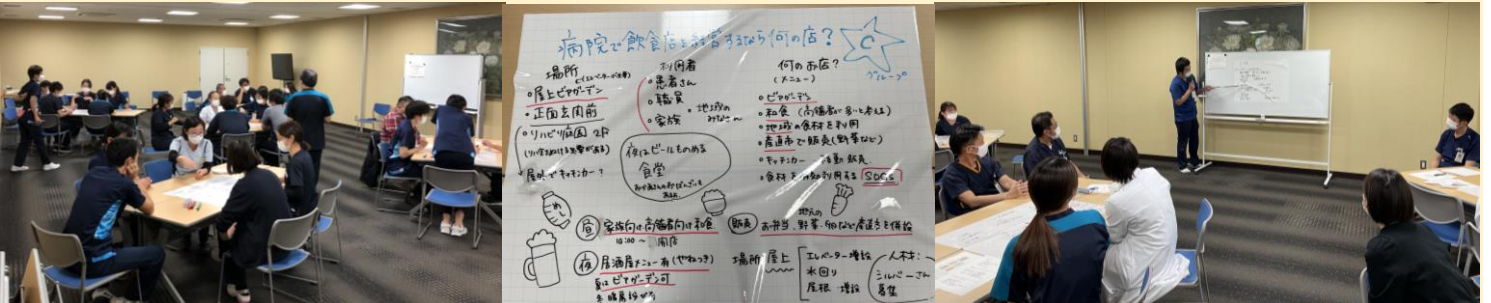 病院で飲食店を経営するなら何の店?
C
グループ
場所
利用者
何のお店?
(メニュー)
○屋上ビアガーデン
○正面玄関前
○リハビリ庭園 2F
屋外でキッチンカー?
○患者さん
○職員
○家族
・地域のみなさん
夜はビールものめる
食堂
○ビアガーデン
○和食(高齢者が多いと考え)
○地域の食材を利用
○産直市で販売(野菜など)
○キッチンカー 移動販売
SDGs
めし
昼 家族向け高齢者向け和食
10:00~ 開店
夜 居酒屋メニュー有(やねつき)
夏はビアガーデン可
販売 地元の
お弁当、野菜、卵など産直を併設
場所 屋上
エレベーター増設
水回り
屋根 増設
人材:
シルバーさん
募集